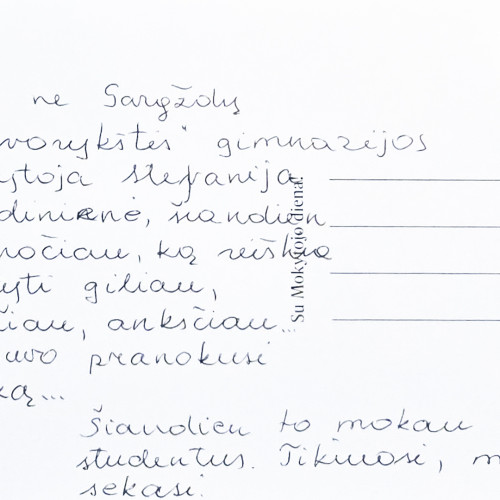 ne Gargždų
vorykštės" gimnazijos
ytoja Stefanija
dinienė, šiandien
močiau, ką reiškia
yti giliau,
čiau, anksčiau...
uvo pranokusi
ką...
Šiandien to mokau
studentus. Tikiuosi, m
sekasi.
Su Mokytojo diena!